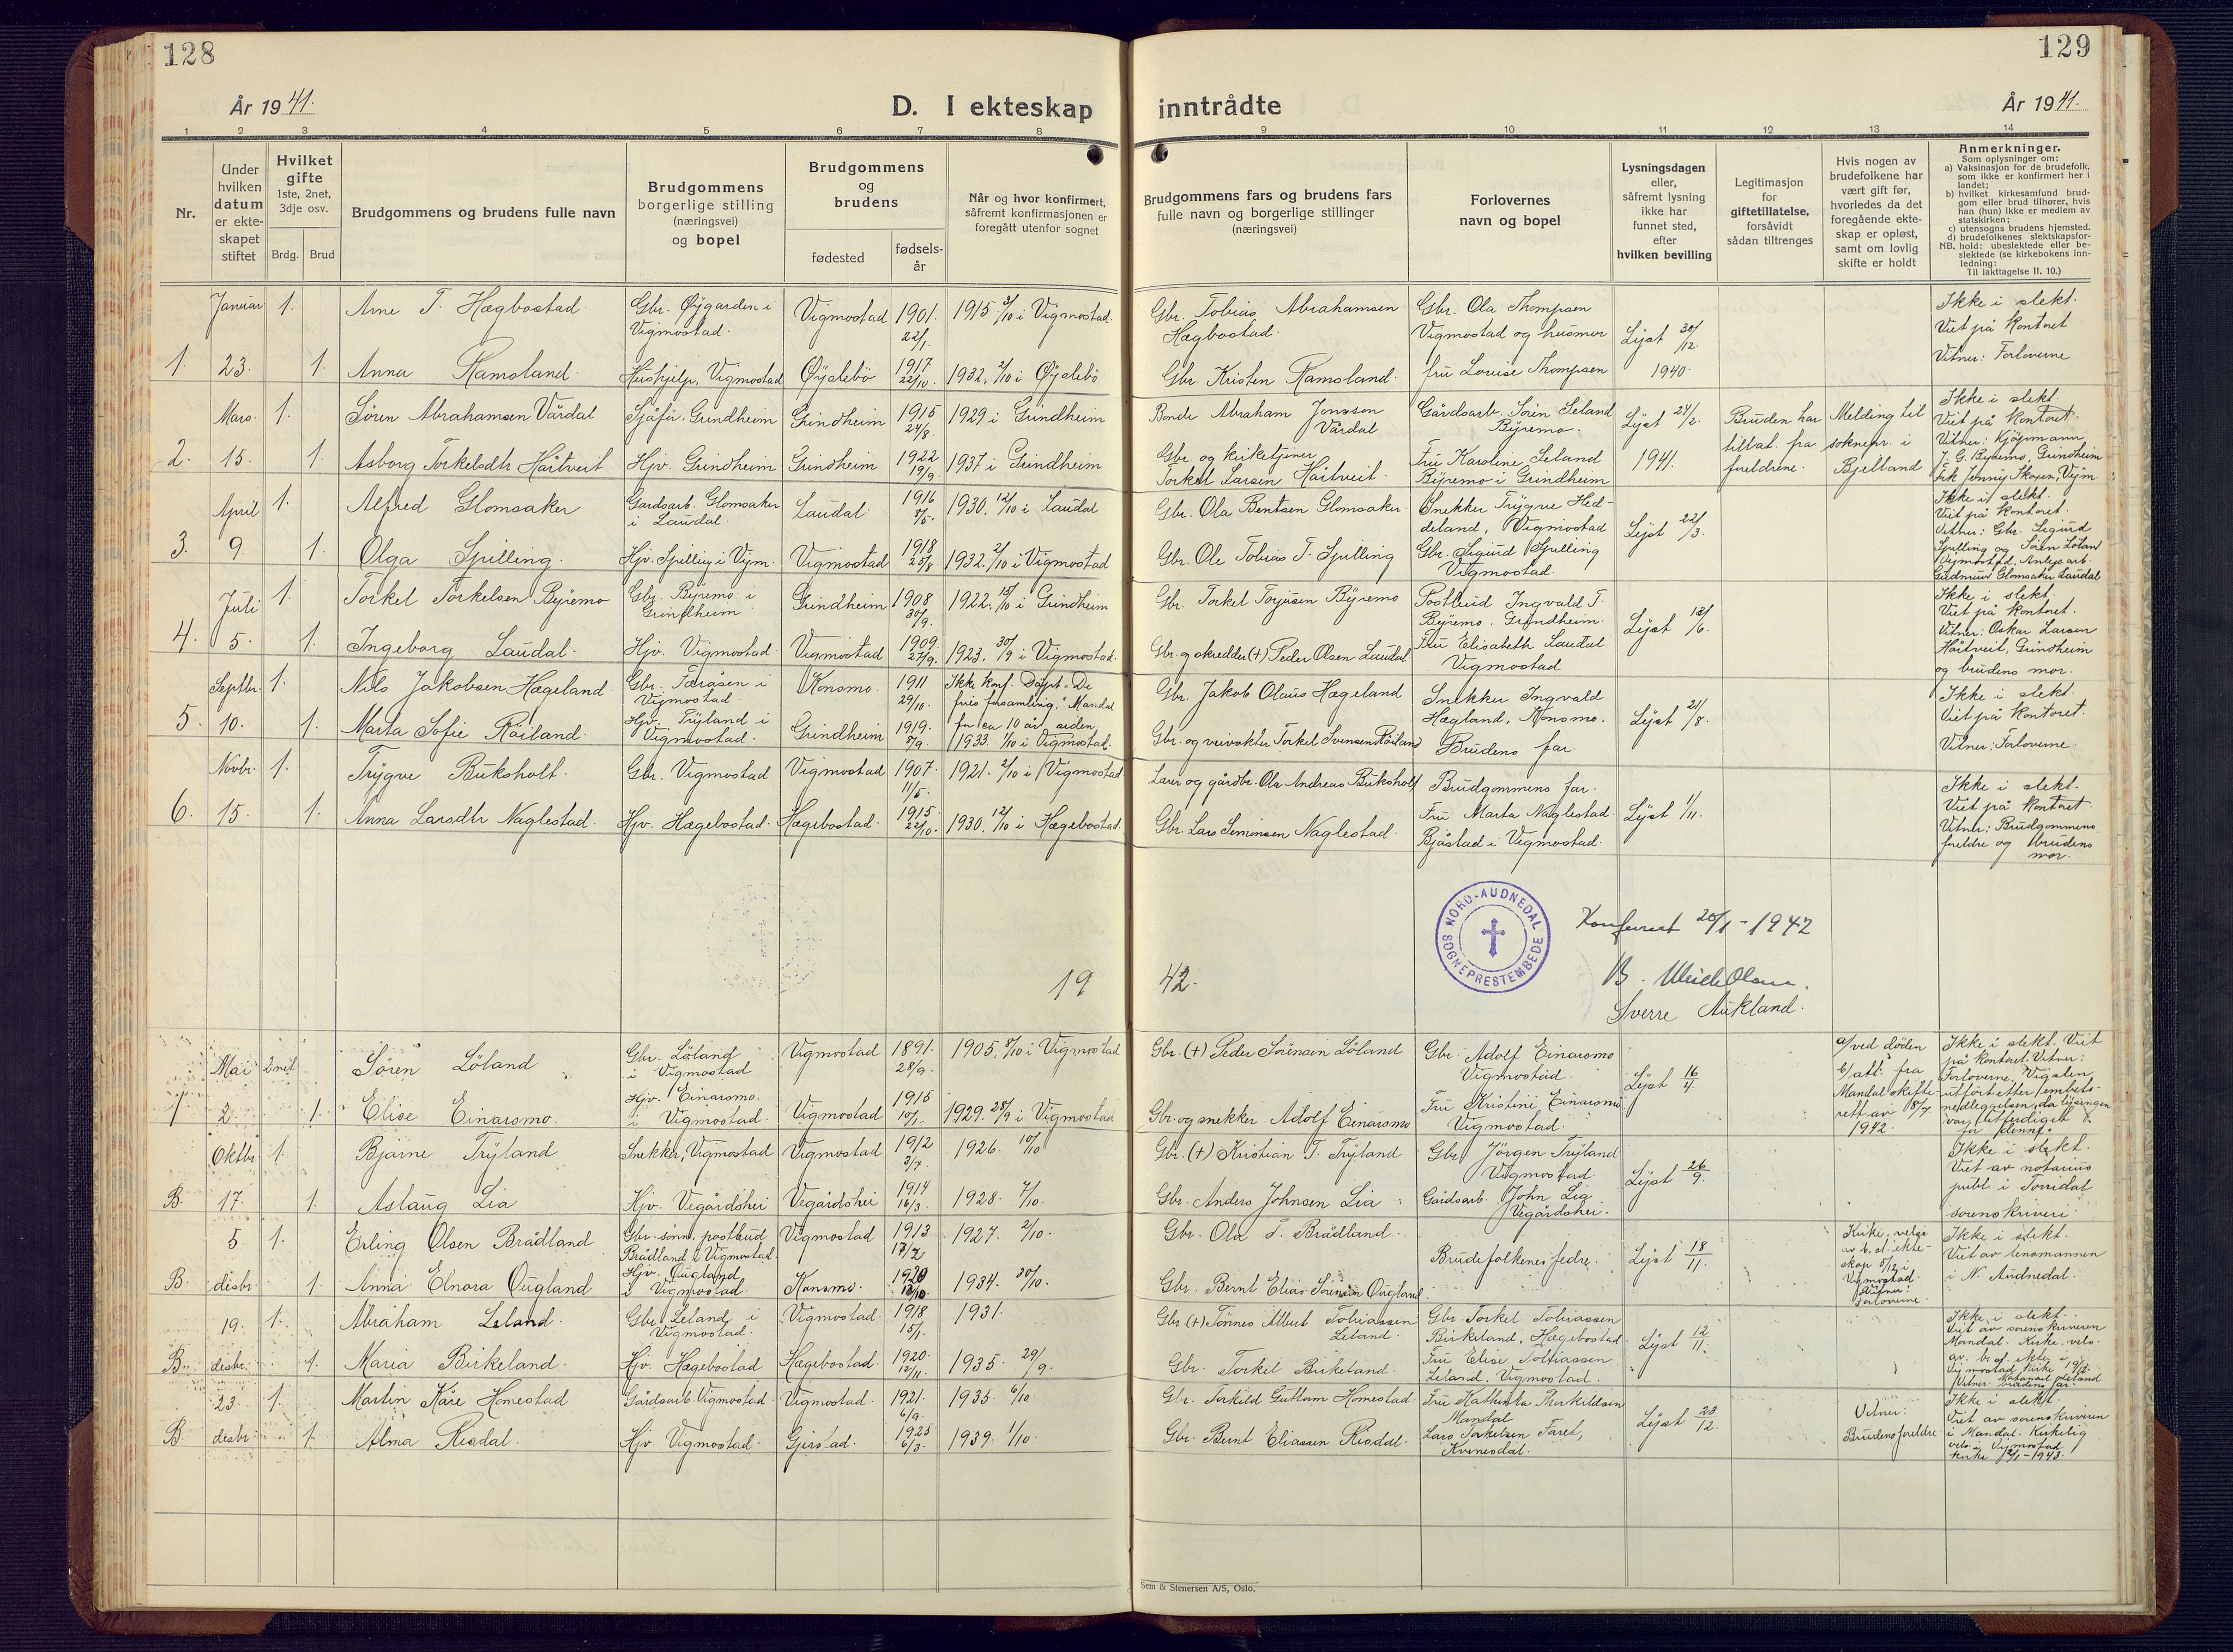 128
129
År 1941.
D. I ekteskap inntrådte
År 1941.
1 2 3 4 5 6 7 8 9 10 11 12 13 14
Nr.
Under hvilken datum er ekteskapet stiftet
Hvilket gifte 1ste, 2net, 3dje osv.
Brdg. Brud
Brudgommens og brudens fulle navn
Brudgommens borgerlige stilling (næringsvei) og bopel
Brudgommens og brudens
fødested
fødsels-år
Når og hvor konfirmert, såfremt konfirmasjonen er foregått utenfor sognet
Brudgommens fars og brudens fars fulle navn og borgerlige stillinger (næringsvei)
Forlovernes navn og bopel
Lysningsdagen eller, såfremt lysning ikke har funnet sted, efter hvilken bevilling
Legitimasjon for giftetillatelse, forsåvidt sådan tiltrenges
Hvis nogen av brudefolkene har vært gift før, hvorledes da det foregående ekteskap er opløst, samt om lovlig skifte er holdt
Anmerkninger.
Som oplysninger om:
a) Vaksinasjon for de brudefolk, som ikke er konfirmert her i landet;
b) hvilket kirkesamfund brudgom eller brud tilhører, hvis han (hun) ikke er medlem av statskirken;
c) utensogns brudens hjemsted.
d) brudefolkenes slektskapsforhold: ubeslektede eller beslektede (se kirkebokens innledning:
NB.
Til iakttagelse II. 10.)
Januar 1. Arne T. Hægbostad. Gbr. Øygarden i Vigmostad. Vigmostad 1901. 22/1. 1915 3/10 i Vigmostad. Gbr. Tobias Abrahamsen Hægbostad. Gbr. Ola Thompsen Vigmostad og husmor Lyst 30/12. Ikke i slekt. Viet på kontoret
1. 23. 1. Anna Ramsland. Hushjelp, Vigmostad Øyslebö 1917 22/10. 1932. 2/10 i Øyslebö Gbr. Kristen Ramsland. fru Louise Thompsen 1940. Vitner: Forloverne
Mars. 1. Sören Abrahamsen Várdal Sjåför. Grindheim Grindheim 1915 24/8. 1929 i Grindheim Bonde Abraham Jonsson Várdal Gårdsarb. Sören Seland Byremo. Lyst 24/2. Bruden har Melding til Ikke i slekt. Viet på kontoret.
2. 15. 1. Asborg Torkelsdtr Håitveit Hjv. Grindheim Grindheim 1922 19/9. 1937 i Grindheim Gbr. og kirketjener Torkel Larsen Håitveit. Fru Karoline Seland Byremo i Grindheim 1941. tillat. fra foreldrene. sokneprr. i Bjelland Vitner: Kjöpmann J. G. Byremo, Grindheim Frk Jenny Skoien, Vigm.
April 1. Alfred Glomsaker Gardsarb. Glomsaker i Laudal. Laudal 1916 8/5. 1930. 12/10 i Laudal Gbr. Ola Bentsen Glomsaker Snekker Trygve Heddeland, Vigmostad Lyst 22/3. Ikke i slekt. Viet på kontoret.
3. 9. 1. Olga Spilling. Hjv. Spilling i Vigm. Vigmostad 1918 25/8 1932. 2/10 i Vigmostad Gbr. Ole Tobias T. Spilling Gbr. Sigurd Spilling Vigmostad. Vitner: Gbr. Sigurd Spilling og Sören Löland Vigmostad, Anlegsarb. Gudmund Glomsaker Laudal
Juli 1. Torkel Torkelsen Byremo Gbr. Byremo i Grindheim Grindheim 1908 30/9. 1922. 15/10 i Grindheim Gbr. Torkel Torjusen Byremo Postbud Ingvald T. Byremo. Grindheim. Lyst 12/6. Ikke i slekt. Viet på kontoret.
4. 5. 1. Ingeborg Laudal. Hjv. Vigmostad. Vigmostad 1909. 27/9. 1923. 30/9 i Vigmostad. Gbr. og skredder (+) Peder Olsen Laudal Fru Elisabeth Laudal Vigmostad Vitner: Oskar Larsen Håitveit, Grindheim og brudens mor.
Septbr. 1. Nils Jakobsen Hægeland. Gbr. Færåsen i Vigmostad. Konsmo. 1911 29/10. Ikke konf. Döpt i "De fries forsamling," Mandal for ca 10 år siden. Gbr. Jakob Olaus Hægeland Snekker Ingvald Hægland, Konsmo. Lyst 21/8. Ikke i slekt. Viet på kontoret.
5. 10. 1. Marta Sofie Råiland. Hjv. Tryland i Vigmostad. Grindheim 1919. 8/9. 1933. 1/10 i Vigmostad. Gbr. og veivokter Torkel Svensen Råiland Brudens far. Vitner: Forloverne
Novbr. 1. Trygve Buksholt. Gbr. Vigmostad Vigmostad 1907. 11/5. 1921. 2/10 i Vigmostad Lærer og gårdbr. Ola Andreas Buksholt Brudgommens far. Lyst 1/11. Ikke i slekt. Viet på kontoret.
6. 15. 1. Anna Larsdtr Naglestad. Hjv. Hægebostad. Hægebostad. 1915. 22/10. 1930. 12/10 i Hægebostad. Gbr. Lars Simonsen Naglestad. Fru Marta Naglestad Bjåstad i Vigmostad. Vitner: Brudgommens foreldre og brudens mor.
NORD-AUDNEDAL SOGNEPRESTEMBEDE
Konferert 20/1 - 1942
1942.
Sverre Aukland.
Mai 2net Sören Löland Gbr. Löland i Vigmostad Vigmostad 1891. 28/9. 1905. 8/10 i Vigmostad Gbr. (+) Peder Sörensen Löland Gbr. Adolf Einarsmo Vigmostad. Lyst 16/4 a/ ved döden b/ att. fra Ikke i slekt. Viet på kontoret. Vitner: Forloverne. Vigslen
1 2. 1. Elise Einarsmo. Hjv. Einarsmo. i Vigmostad. Vigmostad 1915 10/1. 1929. 28/9 i Vigmostad Gbr. og snekker Adolf Einarsmo Fru Kristine Einarsmo Vigmostad. Mandal skifterett av 18/7 1942. utfört etter embetsnedleggelsen, da lysingen var utferdiget för denne.
Oktbr 1. Bjarne Tryland Snekker, Vigmostad Vigmostad 1912 3/7. 1926. 10/10 Gbr. (+) Kristian T. Tryland Gbr. Jörgen Tryland Vigmostad. Lyst 26/9. Ikke i slekt. Viet av notarius
B. 17. 1. Aslaug Lia Hjv. Vegårdshei Vegårdshei 1914 16/3. 1928. 7/10. Gbr. Anders Johnsen Lia Gårdsarb. John Lia Vegårdshei. publ. i Torridal sorenskriveri.
5 1. Erling Olsen Brådland Gbr. sönn, postbud Brådland i Vigmostad. Vigmostad 1913 17/2 1927. 2/10. Gbr. Ola T. Brådland. Brudefolkenes fedre. Lyst 18/11. Kirke. velsi av b. d. ekteskap 5/12 i Vigmostad. Vitner: Forloverne. Ikke i slekt. Viet av lensmannen
B. desbr. 1. Anna Elnora Øugland Hjv. Øugland i Vigmostad Konsmo. 1920 13/10. 1934. 30/10. Gbr. Bernt Elias Sörensen Øugland. i N. Audnedal.
19. 1. Abraham Leland. Gbr. Leland i Vigmostad. Vigmostad. 1918 15/1. 1931. Gbr. (+) Tönnes Albert Tobiassen Leland. Gbr. Torkel Tobiassen Birkeland, Hægebostad. Lyst 12/11. Ikke i slekt. Viet av sorenskriveren Mandal. Kirke. vels.
B. desbr. 1. Maria Birkeland. Hjv. Hægebostad Hægebostad. 1920. 12/11. 1935. 29/9. Gbr. Torkel Birkeland. Fru Elise Tobiassen Leland. Vigmostad. Vigmostad kirke 19/12. Vitner: Natanael Leland brudens far.
23. 1. Martin Kåre Homestad Gårdsarb. Vigmostad Vigmostad. 1921. 6/9. 1935. 6/10. Gbr. Torkild Guttorm Homestad. Fru Kathinka Thorkildsen Mandal Lyst 23/12. Vitner: Ikke i slekt. Viet av sorenskriveren
B. desbr. 1. Alma Risdal. Hjv. Vigmostad. Gjerstad. 1925 6/3. 1939. 1/10. Gbr. Bernt Eliassen Risdal. Lars Torkelsen Faret, Kvinesdal. Brudens foreldre i Mandal. Kirkelig vels. i Vigmostad kirke 12/1 - 1943.
Sem & Stenersen A/S, Oslo.